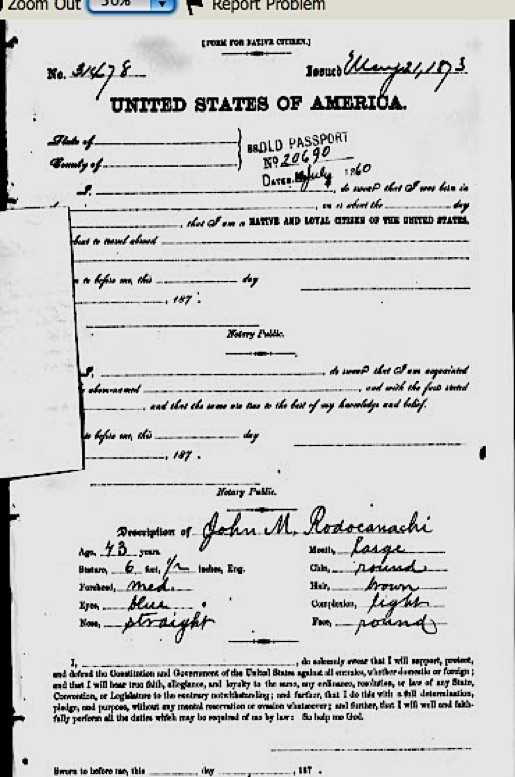 Zoom Out 50% Report Problem
[FORM FOR NATIVE CITIZEN.]
No. 31478 Issued May 21, 1873
UNITED STATES OF AMERICA.
State of
County of
OLD PASSPORT
No 20690
DATED July 1860
I, , do swear that I was born in
, on or about the day
, that I am a NATIVE AND LOYAL CITIZEN OF THE UNITED STATES,
about to travel abroad
to before me, this day
, 187 .
Notary Public.
I, do swear that I am acquainted
abovenamed , and with the facts stated
and that the same are true to the best of my knowledge and belief.
to before me, this day
, 187 .
Notary Public.
Description of John M. Rodocanachi
Age, 43 years. Mouth, large
Stature, 6 feet, 1/2 inches, Eng. Chin, round
Forehead, med. Hair, brown
Eyes, blue Complexion, light
Nose, straight Face, round
I, , do solemnly swear that I will support, protect,
and defend the Constitution and Government of the United States against all enemies, whether domestic or foreign;
and that I will bear true faith, allegiance, and loyalty to the same, any ordinance, resolution, or law of any State,
Convention, or Legislature to the contrary notwithstanding; and further, that I do this with a full determination,
pledge, and purpose, without any mental reservation or evasion whatsoever; and further, that I will well and faith-
fully perform all the duties which may be required of me by law: So help me God.
Sworn to before me, this day , 187 .